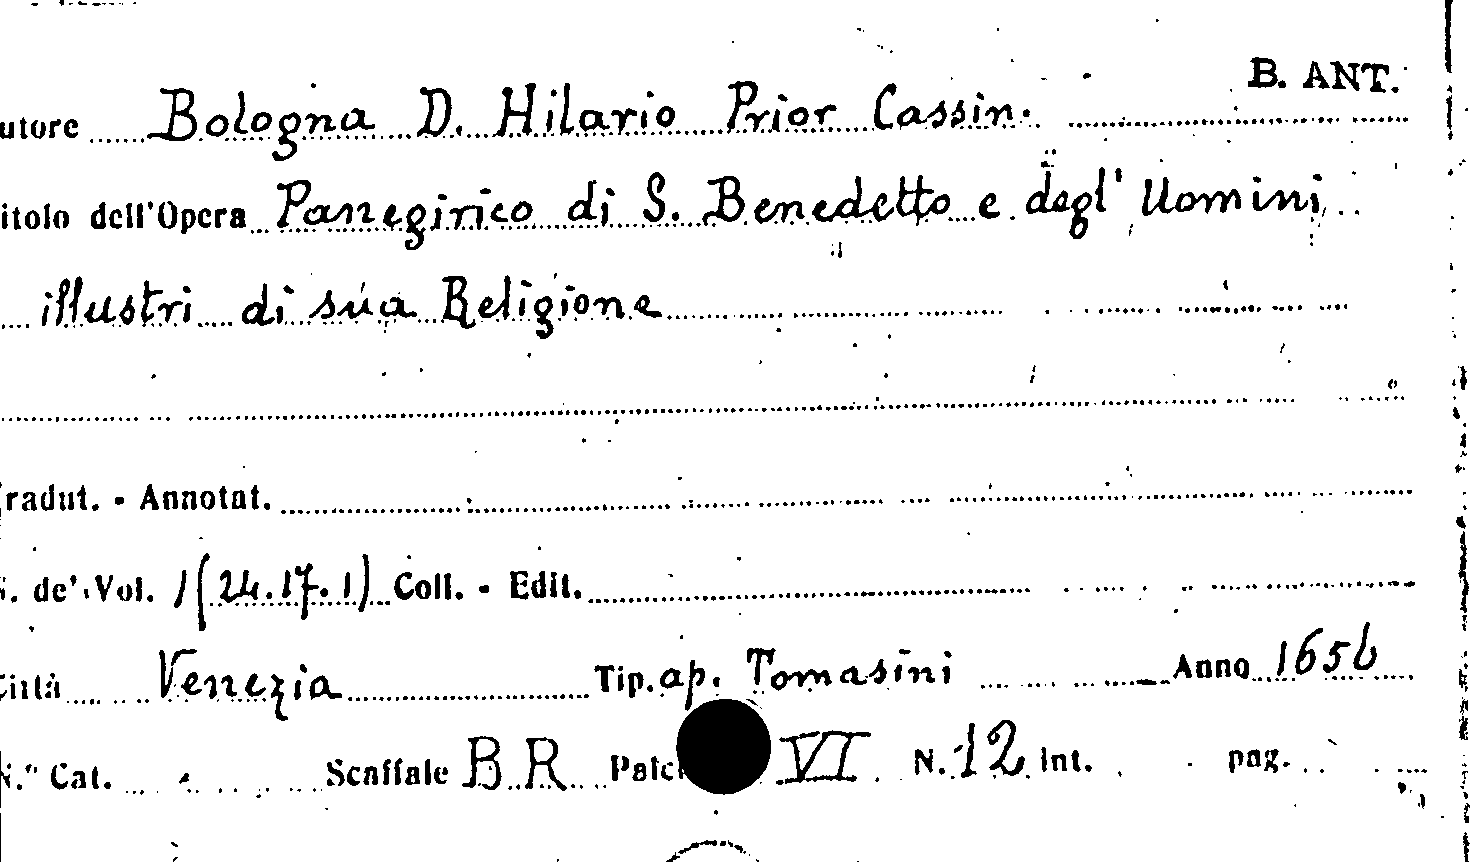 B. ANT.
utore Bologna D. Hilario Prior Cassin.
itolo dell'Opera Panegirico di S. Benedetto e degl' Uomini
illustri di sua Religione
radut. - Annotat.
. de' Vol. 1 (24.17.1) Coll. - Edit.
ittà Venezia Tip. ap. Tomasini Anno 1656
N.° Cat. Scaffale BR Palc VI N. 12 Int. pag.